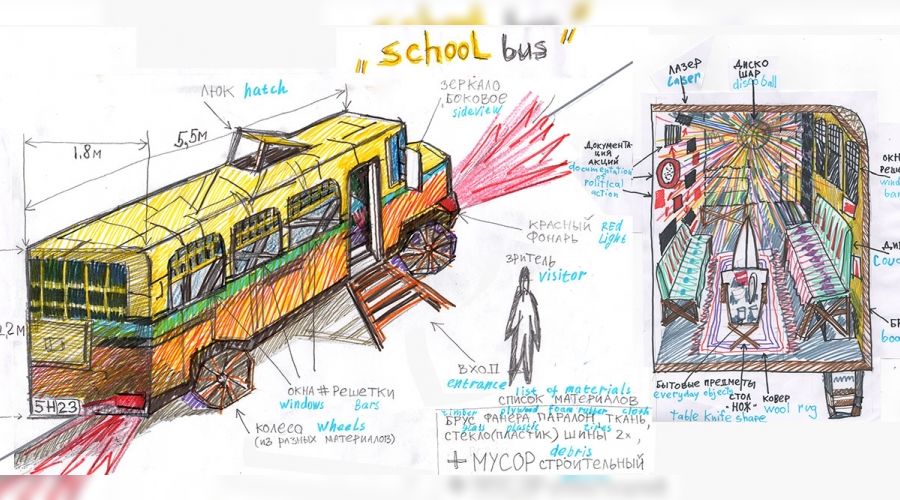 "SCHOOL bus"
ЛЮК hatch
5,5м
1.8м
ЗЕРКАЛО
БОКОВОЕ
sideview
КРАСНЫЙ RED
ФОНАРЬ Light
ЗРИТЕЛЬ
visitor
ВХОД
entrance
ОКНА#РЕШЕТКИ
windows Bars
КОЛЕСА wheels
(ИЗ РАЗНЫХ МАТЕРИАЛОВ)
5H|23
list of materials
СПИСОК МАТЕРИАЛОВ
timber plywood foam rubber cloth
БРУС, ФАНЕРА, ПАРАЛОН, ТКАНЬ,
glass plastic tires
СТЕКЛО(ПЛАСТИК) ШИНЫ 2х,
debris
+ МУСОР СТРОИТЕЛЬНЫЙ
ЛАЗЕР
Laser
ДИСКО
ШАР
disco ball
ДОКУМЕНТА-
ЦИЯ
АКЦИЙ
documentation
of
political
action
БЫТОВЫЕ ПРЕДМЕТЫ
everyday objects
СТОЛ
-НОЖ-
table knife shape
КОВЕР
wool rug